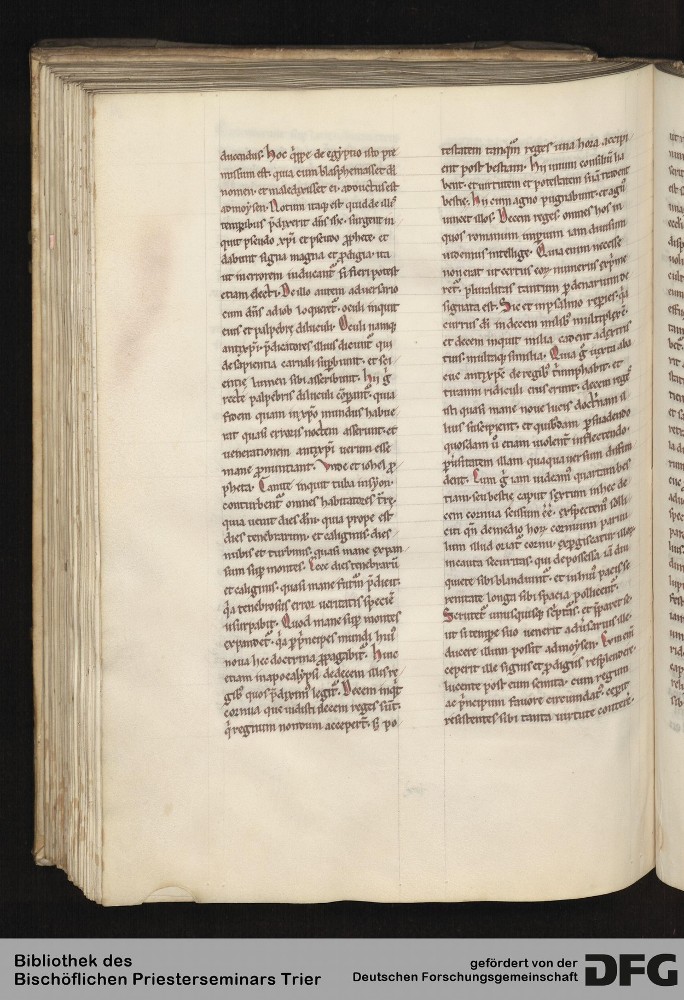 ducendus. Hoc q̃ppe de egyptio isto pre
missum est. quia cum blasphemasset di
nomen. et maledixisset ei. adductus est
ad moysen. Notum itaq; est quid de illis
temporibus p̃dixerit dñs ihc. surgent in
quit pseudo xpi et pseudo ꝓphete. et
dabunt signa magna et ꝓdigia. ita
ut in errorem inducant̃ si fieri potest
etiam electi. De illo autem adversario
cum dñs ad iob loqueret̃. oculi inquit
eius et palpebre diluculi. Oculi namq;
antixp̃i. p̃dicatores illius dicunt̃ qui
de sapientia carnali supbiunt. et sci
entie lumen sibi asscribunt. Hii g̃
recte palpebris diluculi cõparant̃. quia
fidem quam in xp̃o mundus habue
rit quasi erroris noctem asserunt. et
venerationem antixp̃i verum esse
mane ꝓnuntiant. Unde et iohel ꝓ
pheta. Canite inquit tuba in syon.
conturbent̃ omnes habitatores tr̃e.
quia uenit dies dñi. quia prope est
dies tenebrarum. et caliginis. dies
nubis et turbinis. quasi mane expan
sum sup montes. Ecce dies tenebrarũ
et caliginis. quasi mane futurũ p̃dicit̃.
q̃a tenebrosus error veritatis speciẽ
usurpabit. Quod mane sup montes
expandet̃. q̃a p principes mundi hui9
noua hec doctrina ꝓpagabit̃. Hinc
etiam in apocalypsi de decem illis re
gib; quos p̃diximus legit̃. Decem inq̃t
cornua que uidisti decem reges sunt.
q̃ regnum nondum acceperũt. s; po
testatem tanquã reges una hora accipi
ent post bestiam. Hii unum consiliũ ha
bent. et uirtutem et potestatem suã tradent
bestie. Hii cum agno pugnabunt. et agn9
uincet illos. Decem reges omnes hos in
quos romanum impium iam diuisum
uidemus intellige. Quia enim necesse
non erat ut certus eoꝝ numerus exp̃me
ret̃. pluralitas tantum p denarium de
signata est. Sic et in psalmo repies. q̃a
currus di in decem milib; multiplex ẽ.
et decem inquit milia cadent a dextris
tuis. multaq; similia. Quia g̃ iuxta ali
cuius antixp̃i de regib; triumphabit. et
tiranni ridiculi eius erunt. decem reges
isti quasi mane noue lucis doctrinam il
lius suscipient. et quibusdam psuadendo
quosdam u etiam uiolent̃ inflectendo.
p̃uisitatem illam quaquauersum diffun
dent. Cum g̃ iam uideam9 quartam bes
tiam. seu bestie caput sextum in hec de
cem cornua scissum ee. expectem9 solli
citi qñ de medio horꝝ cornuum paruu
lum illud oriat̃ cornu. expergiscatur illoꝝ
incauta securitas. qui depossessa iã diu
quiete sibi blandiunt̃. et in hui9 pacis se
renitate longa sibi spacia pollicent̃.
Scrutet̃ unusquisq; semetipm. et ppparet se.
ut si tempe suo uenerit aduersarius ille.
ducere illum possit ad moysen. Cum enim
ceperit ille signis et ꝓdigiis resplendere.
lucente post eum semita. cum regum
ac principum fauore circumdat9. ceperit
resistentes sibi tanta uirtute contere.
Bibliothek des
Bischöflichen Priesterseminars Trier
gefördert von der
Deutschen Forschungsgemeinschaft
DFG